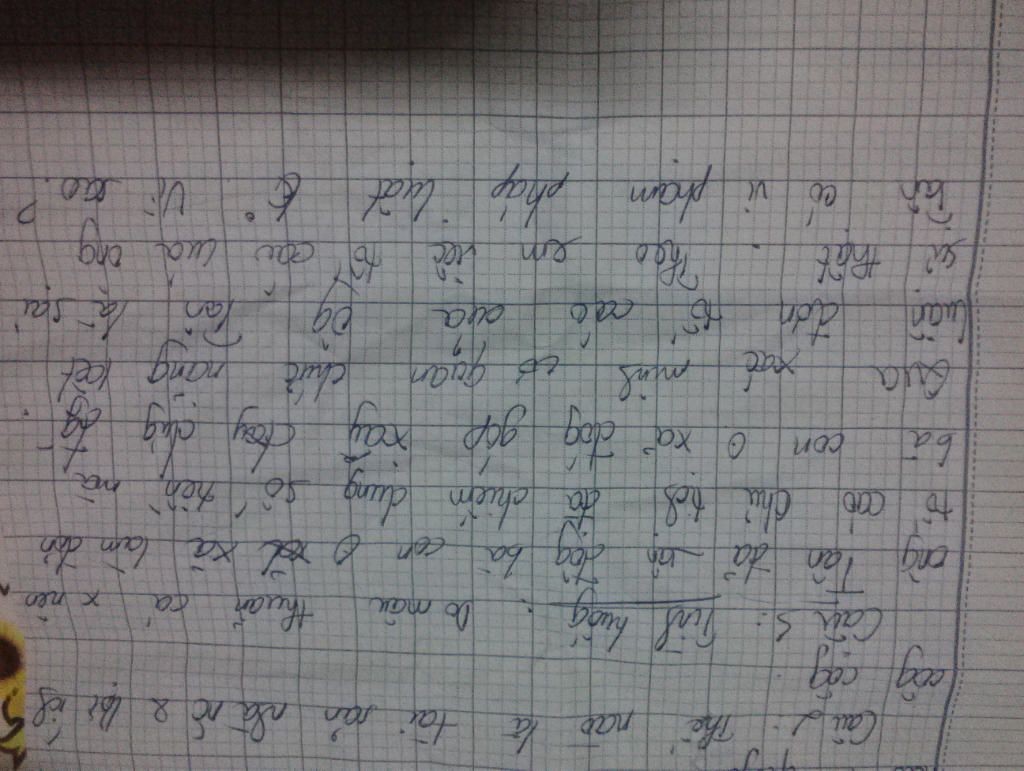 Câu 2: Thế nào là tài sản nhà nc 2 lợi ích
côg cộg
Câu 5: Tình huốg: Do mâu thuẫn cá x nên
ông Tấn đã vận độg bà con ở xã làm đơn
tố cáo chủ tịch đã chiếm dụng số tiền mà
bà con ở xã đóg góp xây dựg đg.
Qua xác minh cơ quan chức năng kết
luận đơn tố cáo của ôg Tấn là sai
sự thật. Theo em việc tố cáo của ông
Tấn có vi phạm pháp luật k. Vì sao?